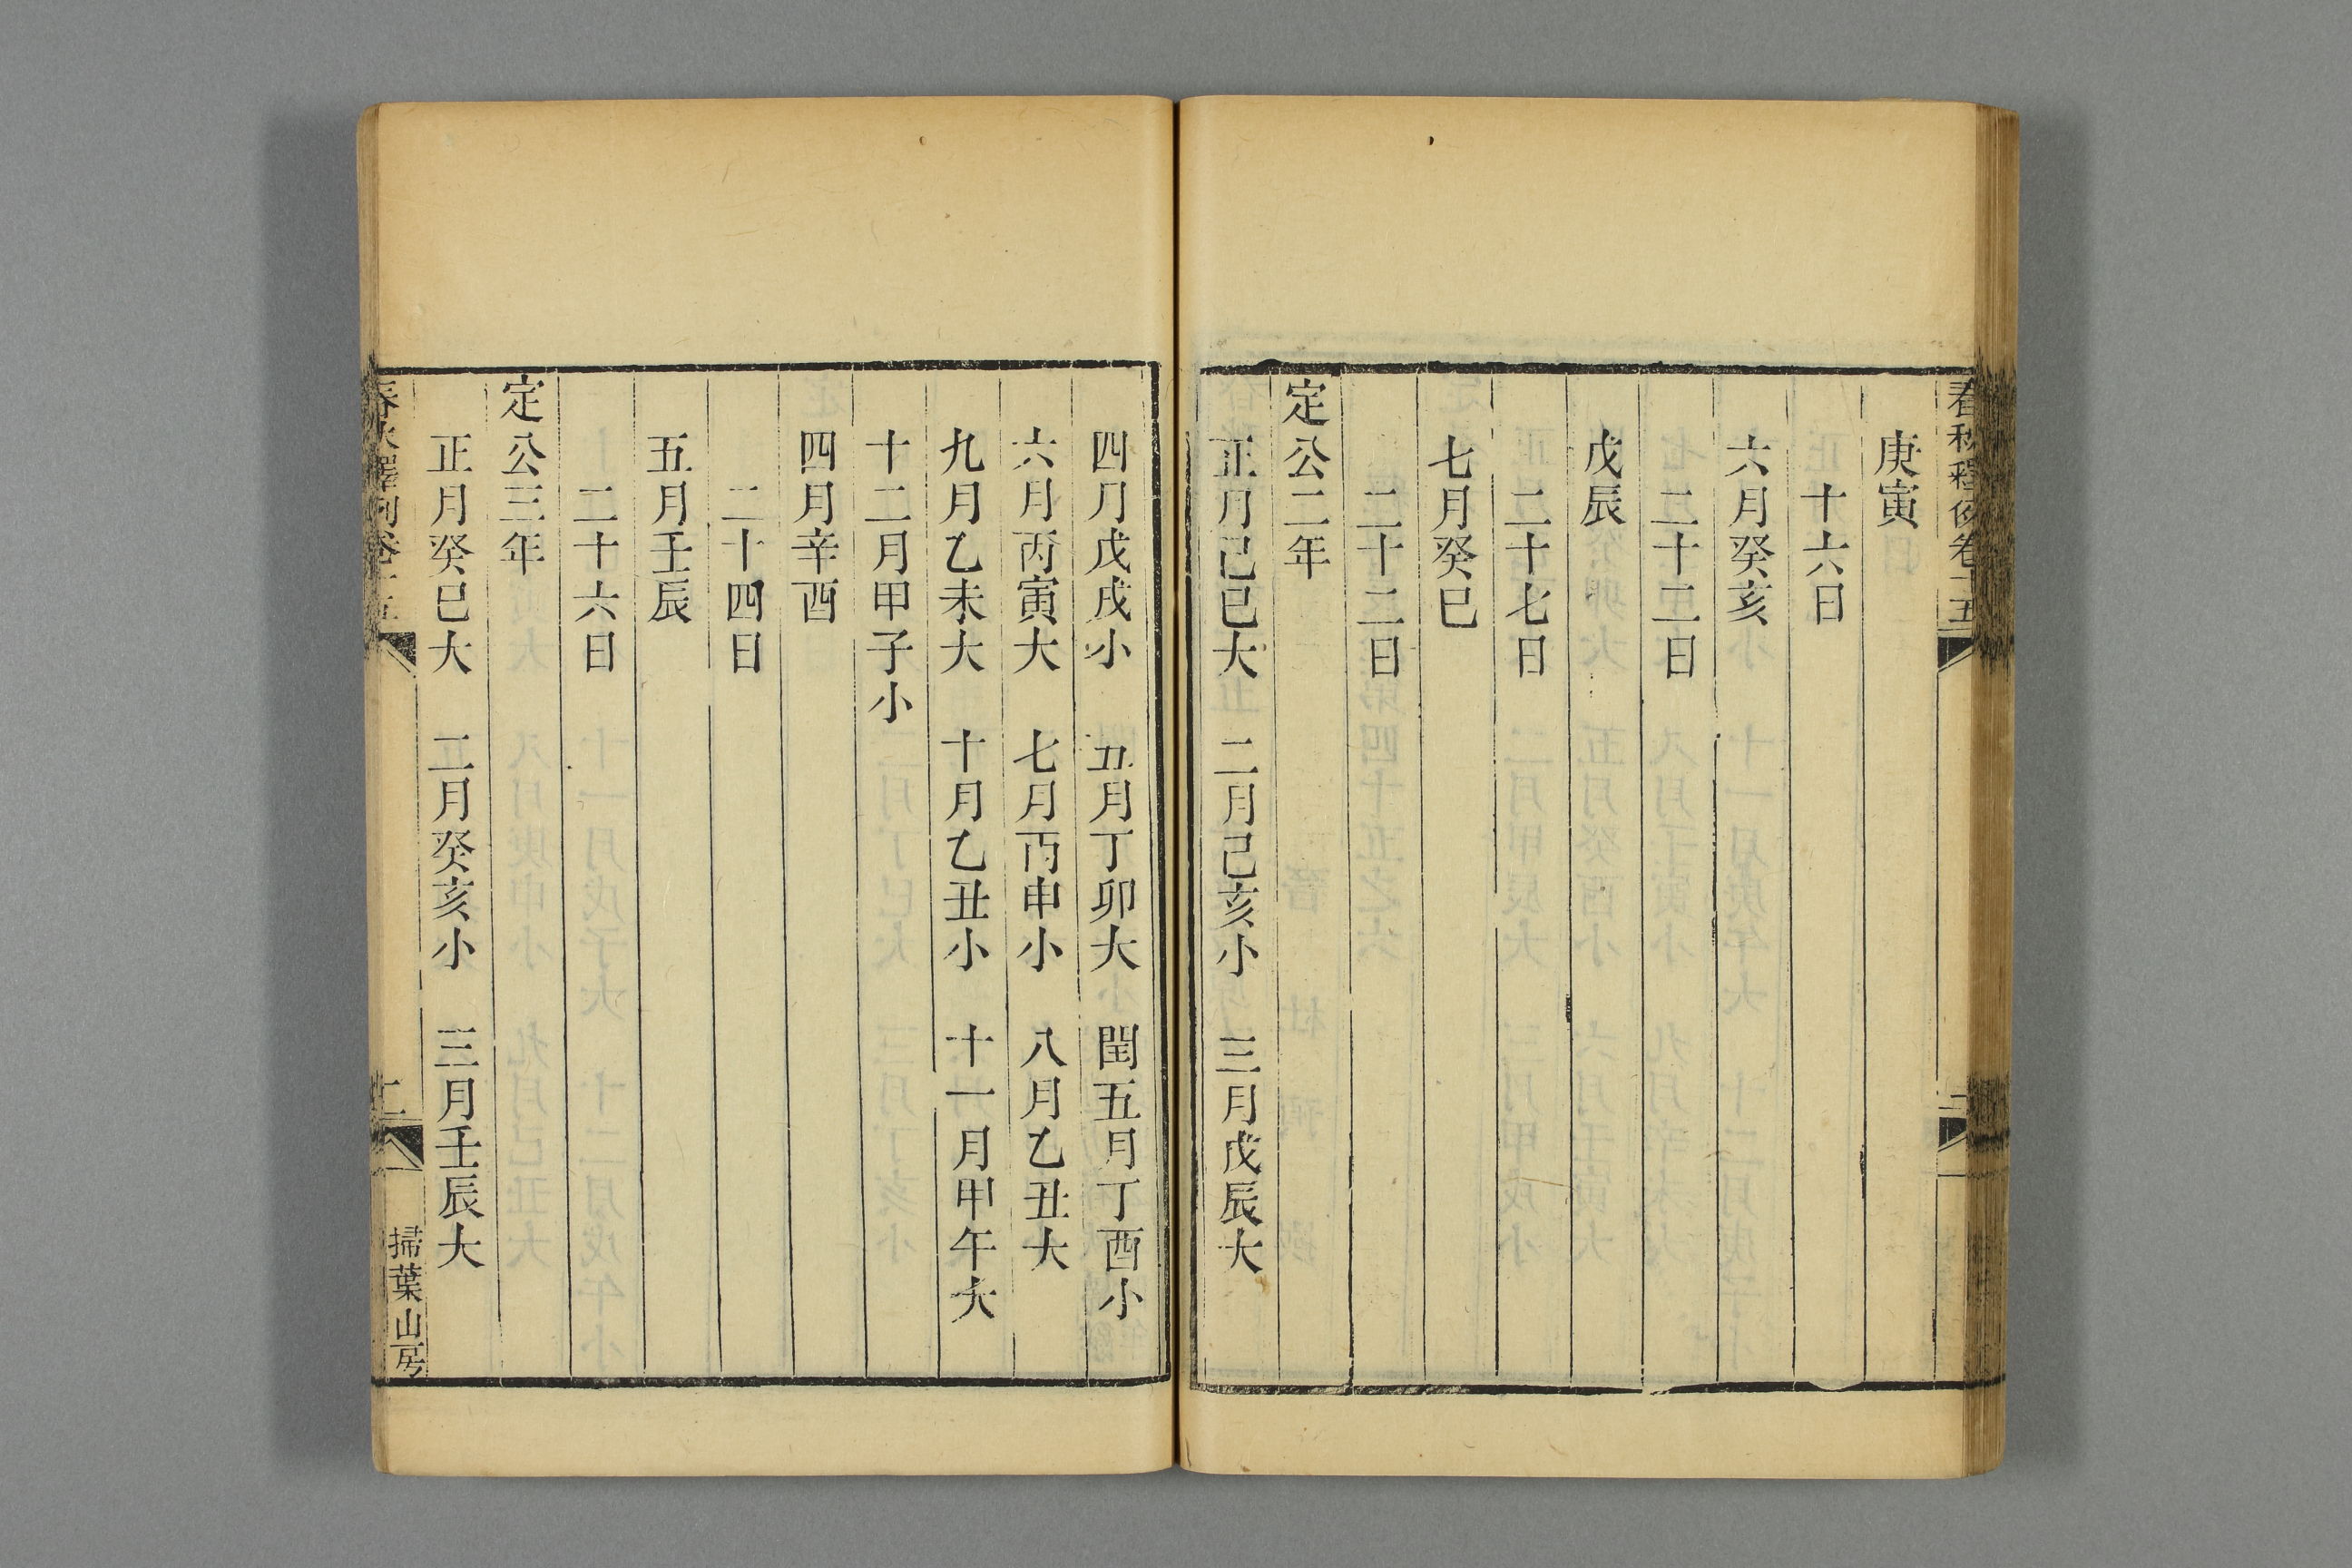 春秋釋例卷十五
庚寅
十六日
六月癸亥
二十二日
戊辰
二十七日
七月癸巳
二十二日
定公二年
正月己巳大　二月己亥小　三月戊辰大
四月戊戌小　五月丁卯大　閏五月丁酉小
六月丙寅大　七月丙申小　八月乙丑大
九月乙未大　十月乙丑小　十一月甲午大
十二月甲子小
四月辛酉
二十四日
五月壬辰
二十六日
定公三年
正月癸巳大　二月癸亥小　三月壬辰大
春秋釋例卷十五
掃葉山房